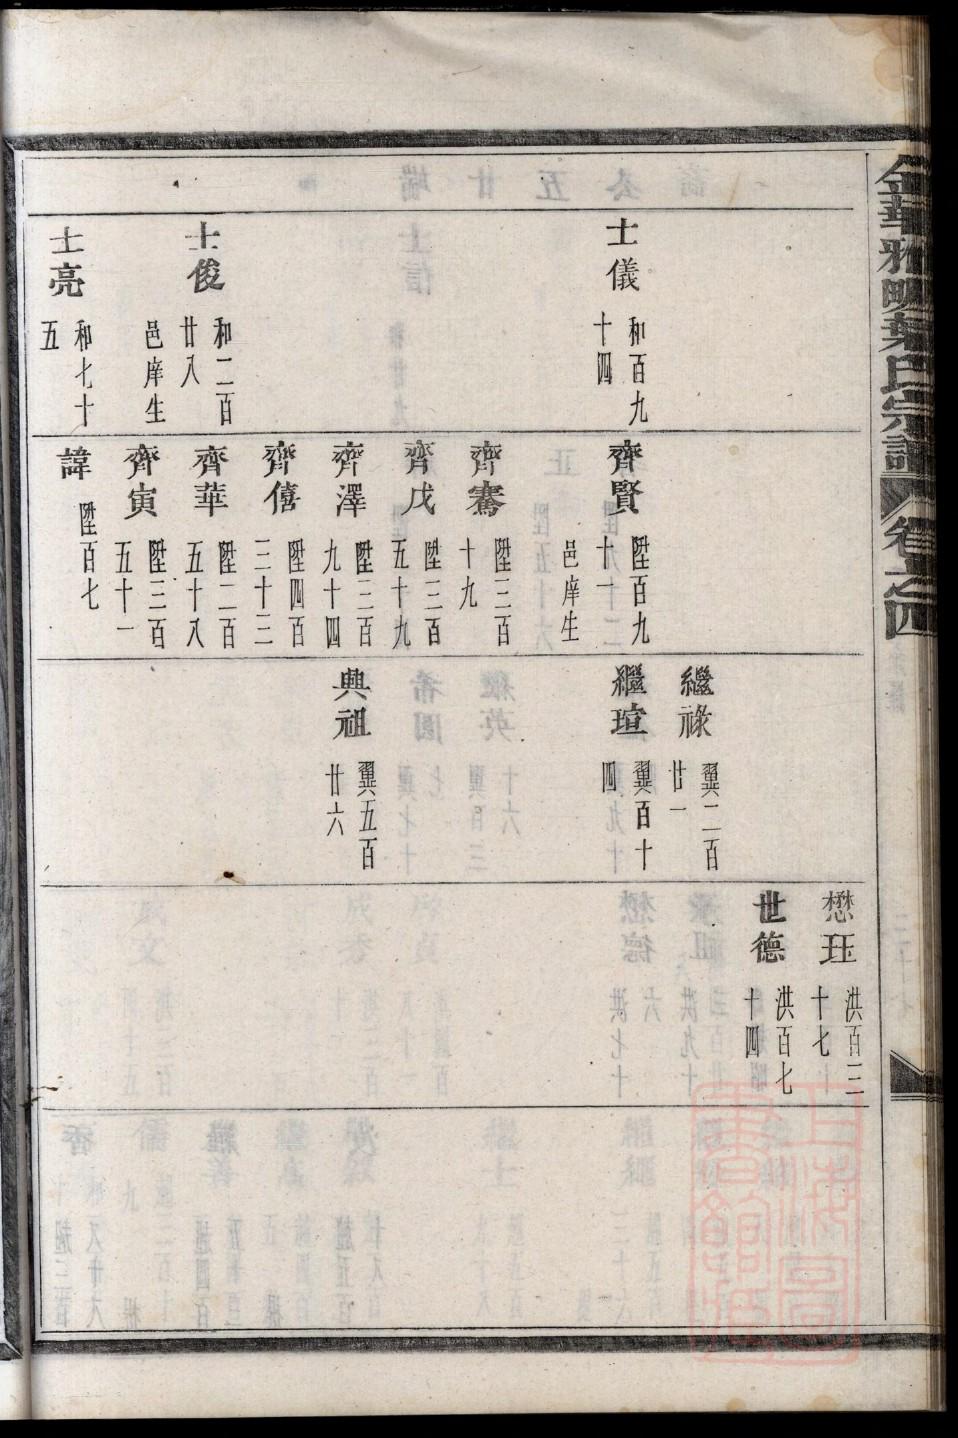 金華雅畈葉氏宗譜
卷之四
士儀
和百九
十四
士俊
和二百
廿八
邑庠生
士亮
和七十
五
齊賢
陞百九
十一
邑庠生
齊騫
陞三百
十九
齊戊
陞三百
五十九
齊澤
陞三百
九十四
齊僖
陞四百
三十三
齊華
陞二百
五十八
齊寅
陞三百
五十一
諱
陞百七
繼祿
翼二百
廿一
繼瑄
翼百十
四
興祖
翼五百
廿六
懋珏
洪百三
十七
世德
洪百七
十四